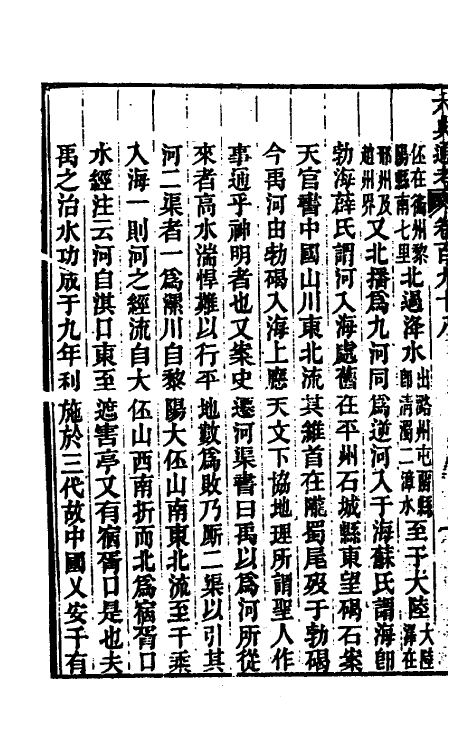 六典通考 卷百九十八
伾在衞州黎陽縣南七里北過洚水出潞州屯畱縣卽清濁二漳水至于大陸大陸澤在
邢州及趙州界又北播爲九河同爲逆河入于海蘇氏謂海卽
勃海薛氏謂河入海處舊在平州石城縣東望碣石案
天官書中國山川東北流其維首在隴蜀尾歿于勃碣
今禹河由勃碣入海上應天文下協地理所謂聖人作
事通乎神明者也又案史遷河渠書曰禹以爲河所從
來者高水湍悍難以行平地數爲敗乃厮二渠以引其
河二渠者一爲漯川自黎陽大伾山南東北流至千乘
入海一則河之經流自大伾山西南折而北爲宿胥口
水經注云河自淇口東至遮害亭又有宿胥口是也夫
禹之治水功成于九年利施於三代故中國乂安千有